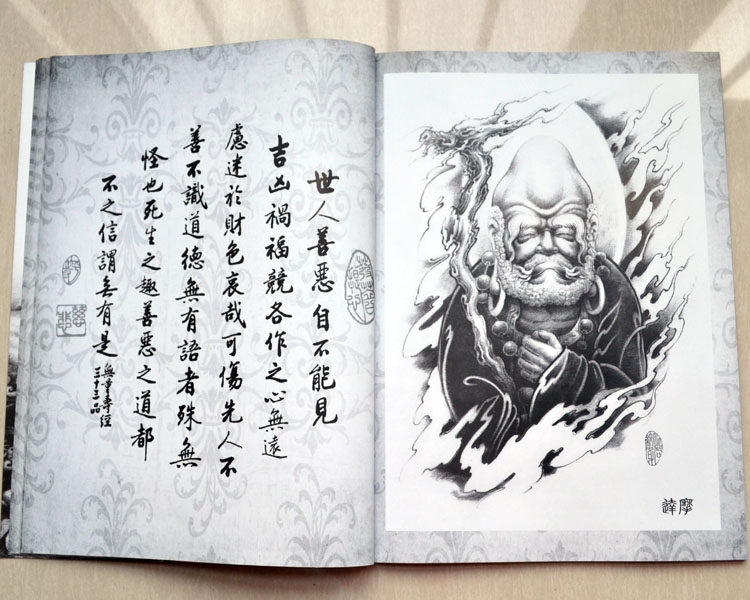 世人善惡自不能見
吉凶禍福競各作之心無遠
慮迷於財色哀哉可傷先人不
善不識道德無有語者殊無
怪也死生之趣善惡之道都
不之信謂無有是
無量壽經
三十三品
達摩